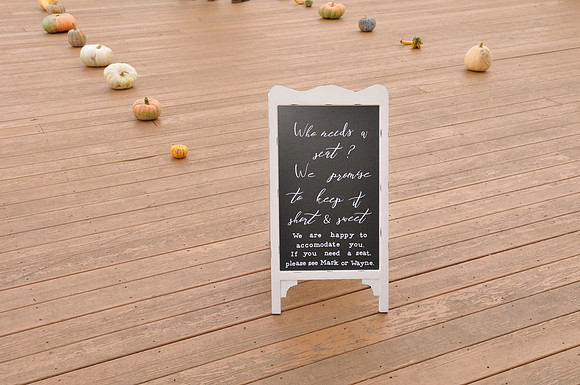 Who needs a
seat ?
We promise
to keep it
short & sweet
We are happy to
accomodate you.
If you need a seat,
please see Mark or Wayne.